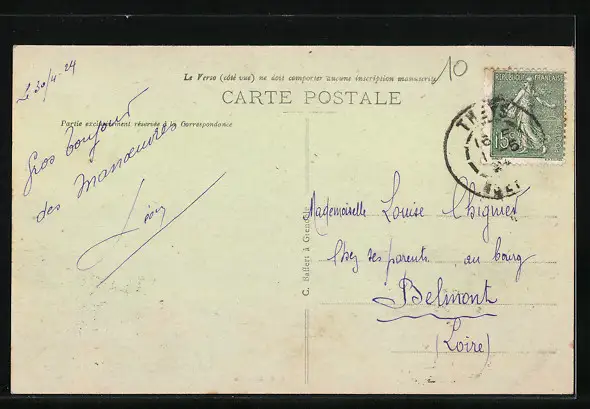 Le 30/4-24
10
Le Verso (côté vue) ne doit comporter aucune inscription manuscrite
CARTE POSTALE
Partie exclusivement réservée à la Correspondance
REPUBLIQUE FRANÇAISE
15
THEYS
ISÈRE
Gros bonjour
des Manoeuvres
Léon
C. Baffert à Grenoble
Mademoiselle Louise Chignier
Chez ses parents au bourg
Belmont
(Loire)